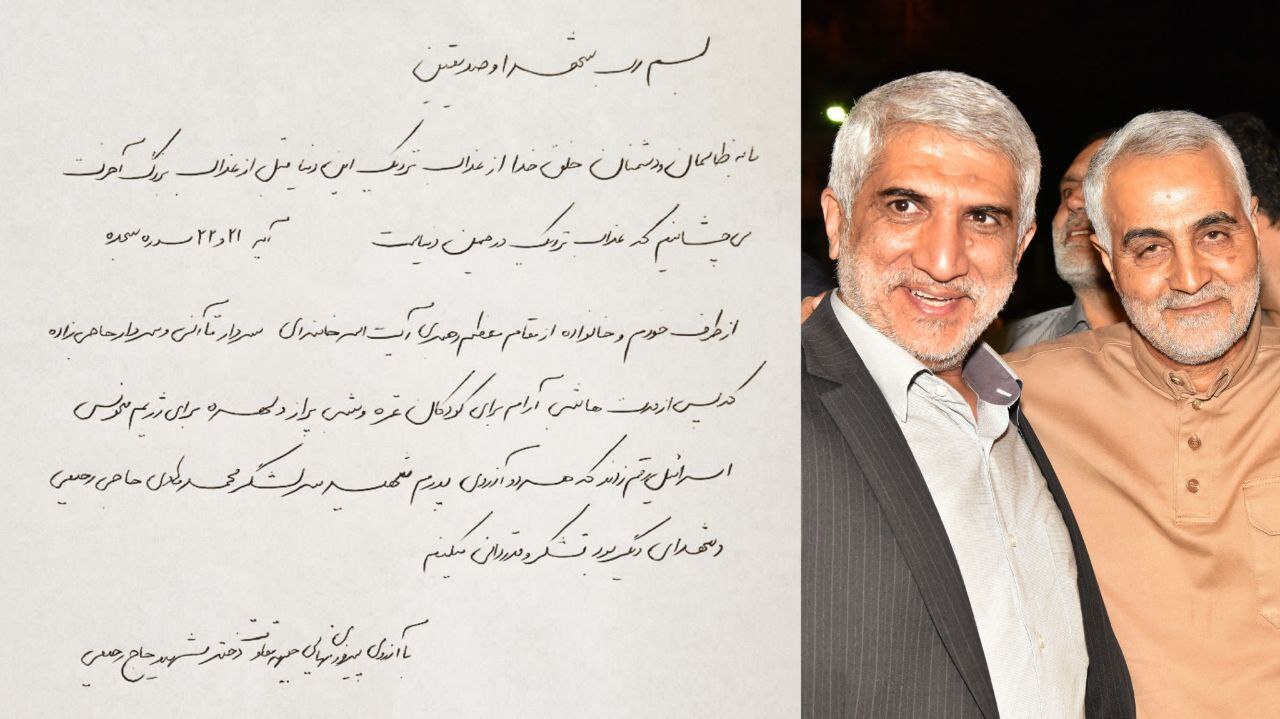 بسم رب شهدا و صدیقین
ما به ظالمان و دشمنان خلق خدا از عذاب نزدیک این دنیا قبل از عذاب بزرگ آخرت
می چشانیم که عذاب نزدیک در همین دنیاست آیه ۲۱ و ۲۲ سوره سجده
از طرف خودم و خانواده از مقام معظم رهبری آیت الله خامنه‌ای سردار قاآنی و سردار حاجی زاده
که پس از مدت ها شبی آرام برای کودکان غزه و شبی پر از دلهره برای رژیم منحوس
اسرائیل رقم زدند که هر دو آرزوی پدرم شهید سرلشگر محمدهادی حاجی رحیمی
و شهدای دیگر بود تشکر و قدردانی میکنیم
با آرزوی پیروزی نهائی جبهه مقاومت دختر شهید حاج رحیمی